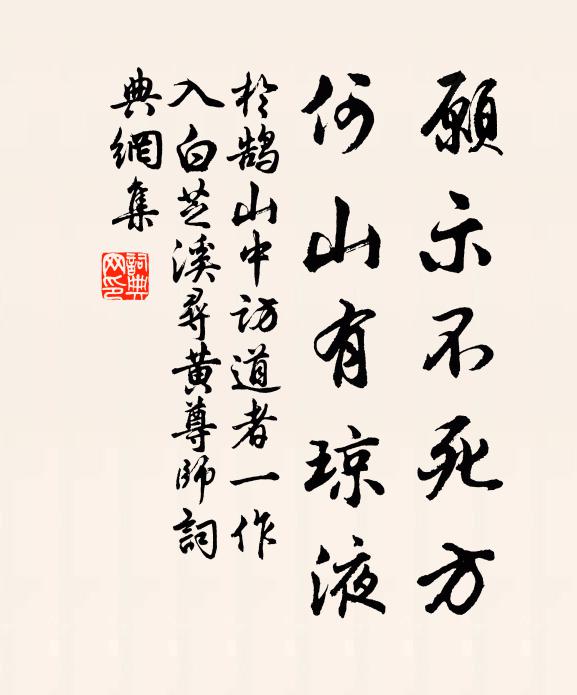 願示不死方
何山有琼液
於鹄山中訪道者一作
入白芝溪尋黄尊師詞
典網集
詞典網印